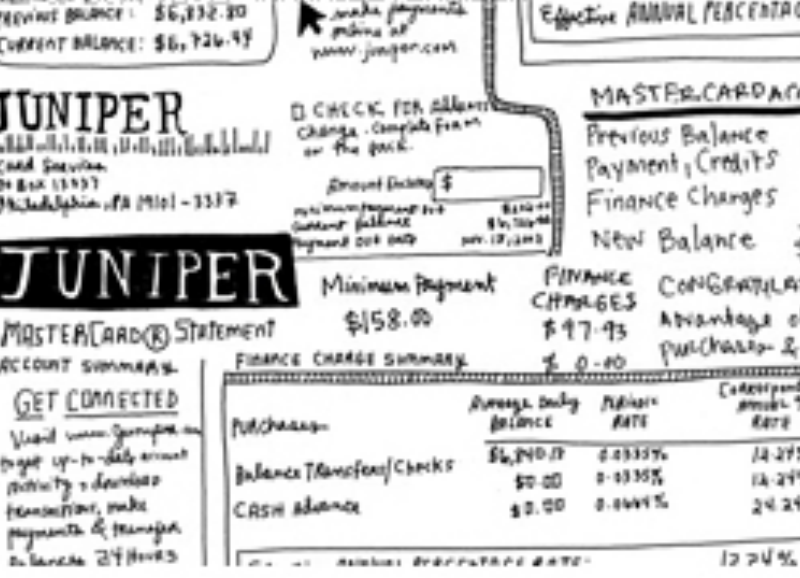 PREVIOUS BALANCE: $6,832.80
CURRENT BALANCE: $6,726.44
make payments
online at
www.juniper.com
Effective ANNUAL PERCENTAG
JUNIPER
Card Services
PO Box 13337
Philadelphia, PA 19101-3337
CHECK FOR address
change. Complete form
on the back.
Amount Enclosed $
minimum payment due
Current Balance
Payment Due Date
MASTERCARD ACC
Previous Balance
Payment, Credits
Finance Charges
New Balance
JUNIPER
MASTERCARD® STATEMENT
ACCOUNT SUMMARY
Minimum Payment
$158.00
FINANCE
CHARGES
$97.93
$ 0.00
CONGRATULA
Advantage o
purchases &
GET CONNECTED
Visit www.juniper.com
to get up-to-date account
activity & download
transactions, make
payments & transfer
balances 24 HOURS
FINANCE CHARGE SUMMARY
Average Daily
BALANCE
Periodic
RATE
Correspond
ANNUAL %
RATE
PURCHASES
Balance Transfers/Checks
CASH Advance
$0.00
0.0335%
$0.00
ANNUAL PERCENTAGE RATE: